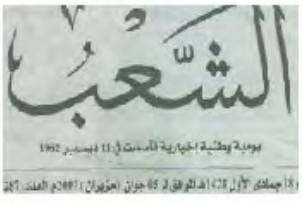 الشّعب
يومية وطنية إخبارية تأسست في 11 ديسمبر 1962
18 جمادى الأول 1428هـ الموافق لـ 05 جوان (حزيران) 2007م العدد